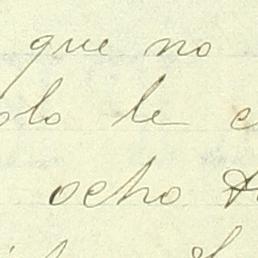 que no
olo le
ocho